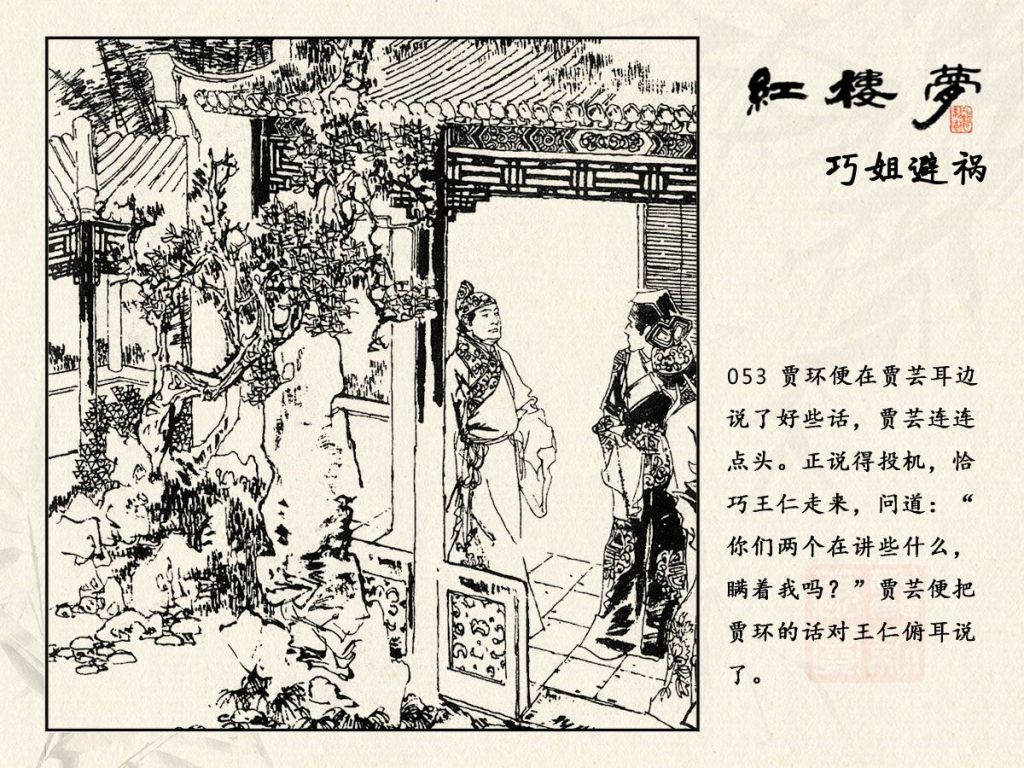 紅樓夢
巧姐避祸
053 贾环便在贾芸耳边
说了好些话，贾芸连连
点头。正说得投机，恰
巧王仁走来，问道：“
你们两个在讲些什么，
瞒着我吗？”贾芸便把
贾环的话对王仁俯耳说
了。